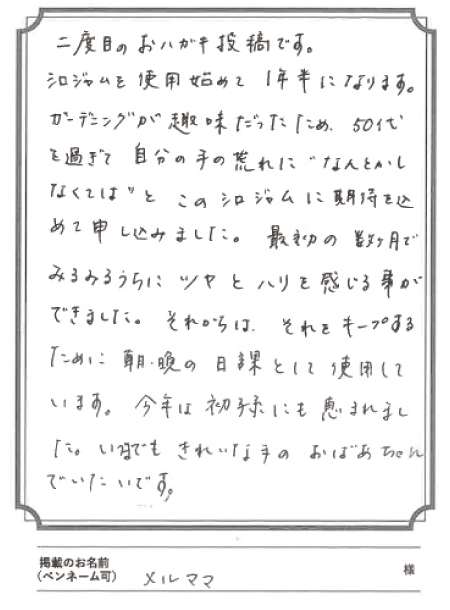 二度目のおハガキ投稿です。
シロジャムを使用始めて 1年半になります。
ガーデニングが趣味だったため、50代
を過ぎて 自分の手の荒れに "なんとかし
なくては" と このシロジャムに期待を込
めて申し込みました。 最初の数ヶ月で
みるみるうちに ツヤ と ハリを感じる事が
できました。 それからは、それをキープする
ために 朝・晩の日課として使用して
います。 今年は初孫にも恵まれまし
た。いつまでもきれいな手のおばあちゃん
でいたいです。
掲載のお名前
(ペンネーム可) メルママ 様